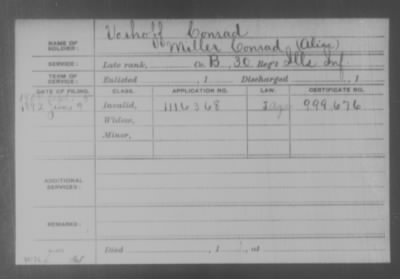 Conrad
NAME OF SOLDIER:
Miller Conrad (Alias)
SERVICE: Late rank, Co. B, 30 Reg't Ills Inf
TERM OF SERVICE: Enlisted , 1 Discharged , 1
DATE OF FILING. CLASS. APPLICATION NO. LAW. CERTIFICATE NO.
1892 June 9 Invalid, 1116368 999.676
Widow,
Minor,
ADDITIONAL SERVICES:
REMARKS:
Died , 1 , at